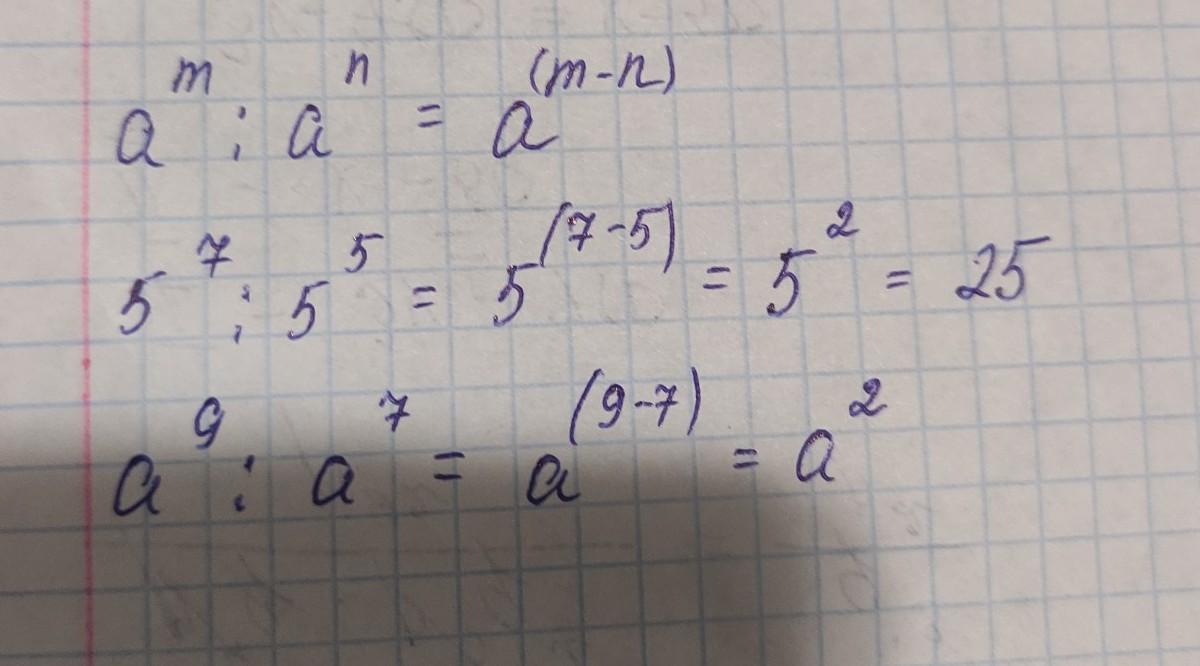 a^m : a^n = a^(m-n)
5^7 : 5^5 = 5^(7-5) = 5^2 = 25
a^9 : a^7 = a^(9-7) = a^2